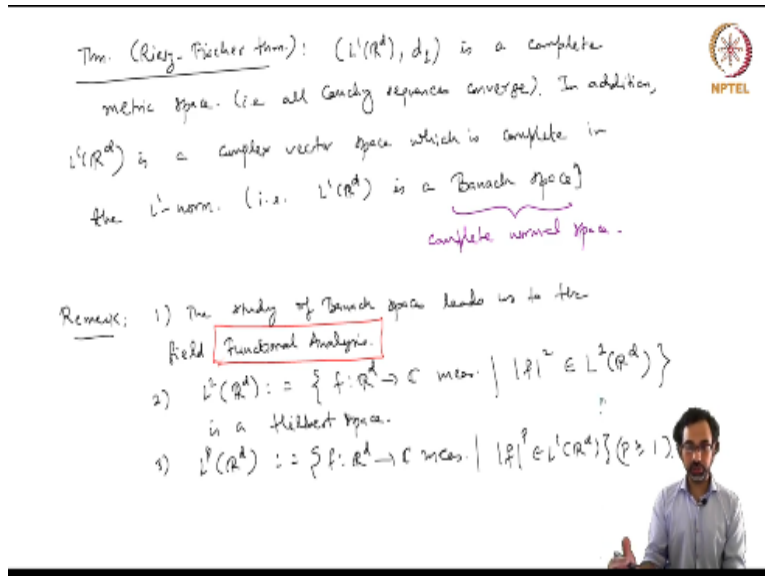 Thm. (Riesz-Fischer thm.): (L¹(ℝᵈ), d₁) is a complete
NPTEL
metric space. (i.e all Cauchy sequences converge). In addition,
L¹(ℝᵈ) is a complex vector space which is complete in
the L¹-norm. (i.e. L¹(ℝᵈ) is a Banach space]
complete normed space.
Remark: 1) The study of Banach spaces leads us to the
field Functional Analysis.
2) L²(ℝᵈ) := { f: ℝᵈ → ℂ meas. | |f|² ∈ L²(ℝᵈ) }
is a Hilbert space.
3) Lᵖ(ℝᵈ) := { f: ℝᵈ → ℂ meas. | |f|ᵖ ∈ L¹(ℝᵈ) } (p ≥ 1).